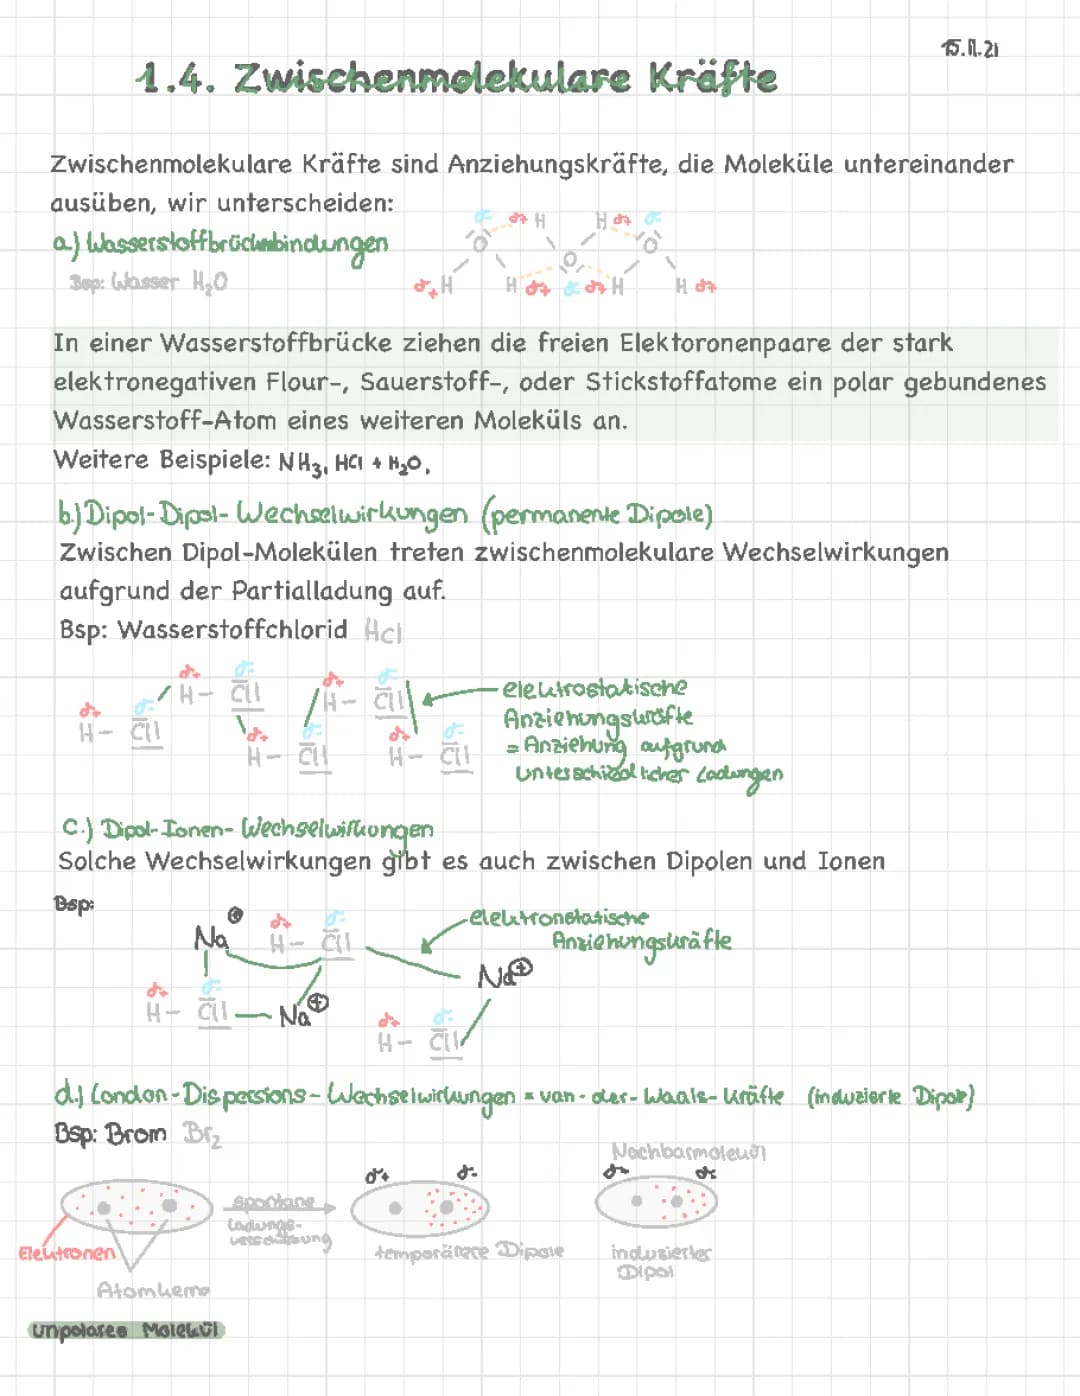 15.11.21
1.4. Zwischenmolekulare Kräfte
Zwischenmolekulare Kräfte sind Anziehungskräfte, die Moleküle untereinander
ausüben, wir unterscheiden:
a.) Wasserstoffbrückenbindungen
Bsp: Wasser H₂O
δ- δ+ H H δ+ δ-
O O O
δ+ H H δ+ δ- δ+ H H δ+
In einer Wasserstoffbrücke ziehen die freien Elektoronenpaare der stark
elektronegativen Flour-, Sauerstoff-, oder Stickstoffatome ein polar gebundenes
Wasserstoff-Atom eines weiteren Moleküls an.
Weitere Beispiele: NH₃, HCl + H₂O,
b.) Dipol-Dipol-Wechselwirkungen (permanente Dipole)
Zwischen Dipol-Molekülen treten zwischenmolekulare Wechselwirkungen
aufgrund der Partialladung auf.
Bsp: Wasserstoffchlorid HCl
δ+ δ- δ+ δ-
H – Cl H – Cl
δ+ δ- δ+ δ- δ+ δ-
H – Cl H – Cl H – Cl
elektrostatische
Anziehungskräfte
= Anziehung aufgrund
unterschiedlicher Ladungen
c.) Dipol-Ionen-Wechselwirkungen
Solche Wechselwirkungen gibt es auch zwischen Dipolen und Ionen
Bsp:
Na⊕ δ+ δ- H – Cl
elektronstatische
Anziehungskräfte
Na⊕
δ+ δ- H – Cl Na⊕
δ+ δ- H – Cl
d.) London-Dispersions-Wechselwirkungen = van-der-Waals-Kräfte (induzierte Dipole)
Bsp: Brom Br₂
Nachbarmolekül
δ+ δ- δ+ δ-
spontane
Ladungs-
verschiebung
Elektronen
temporärere Dipole
induzierter
Dipol
Atomkerne
unpolares Molekül